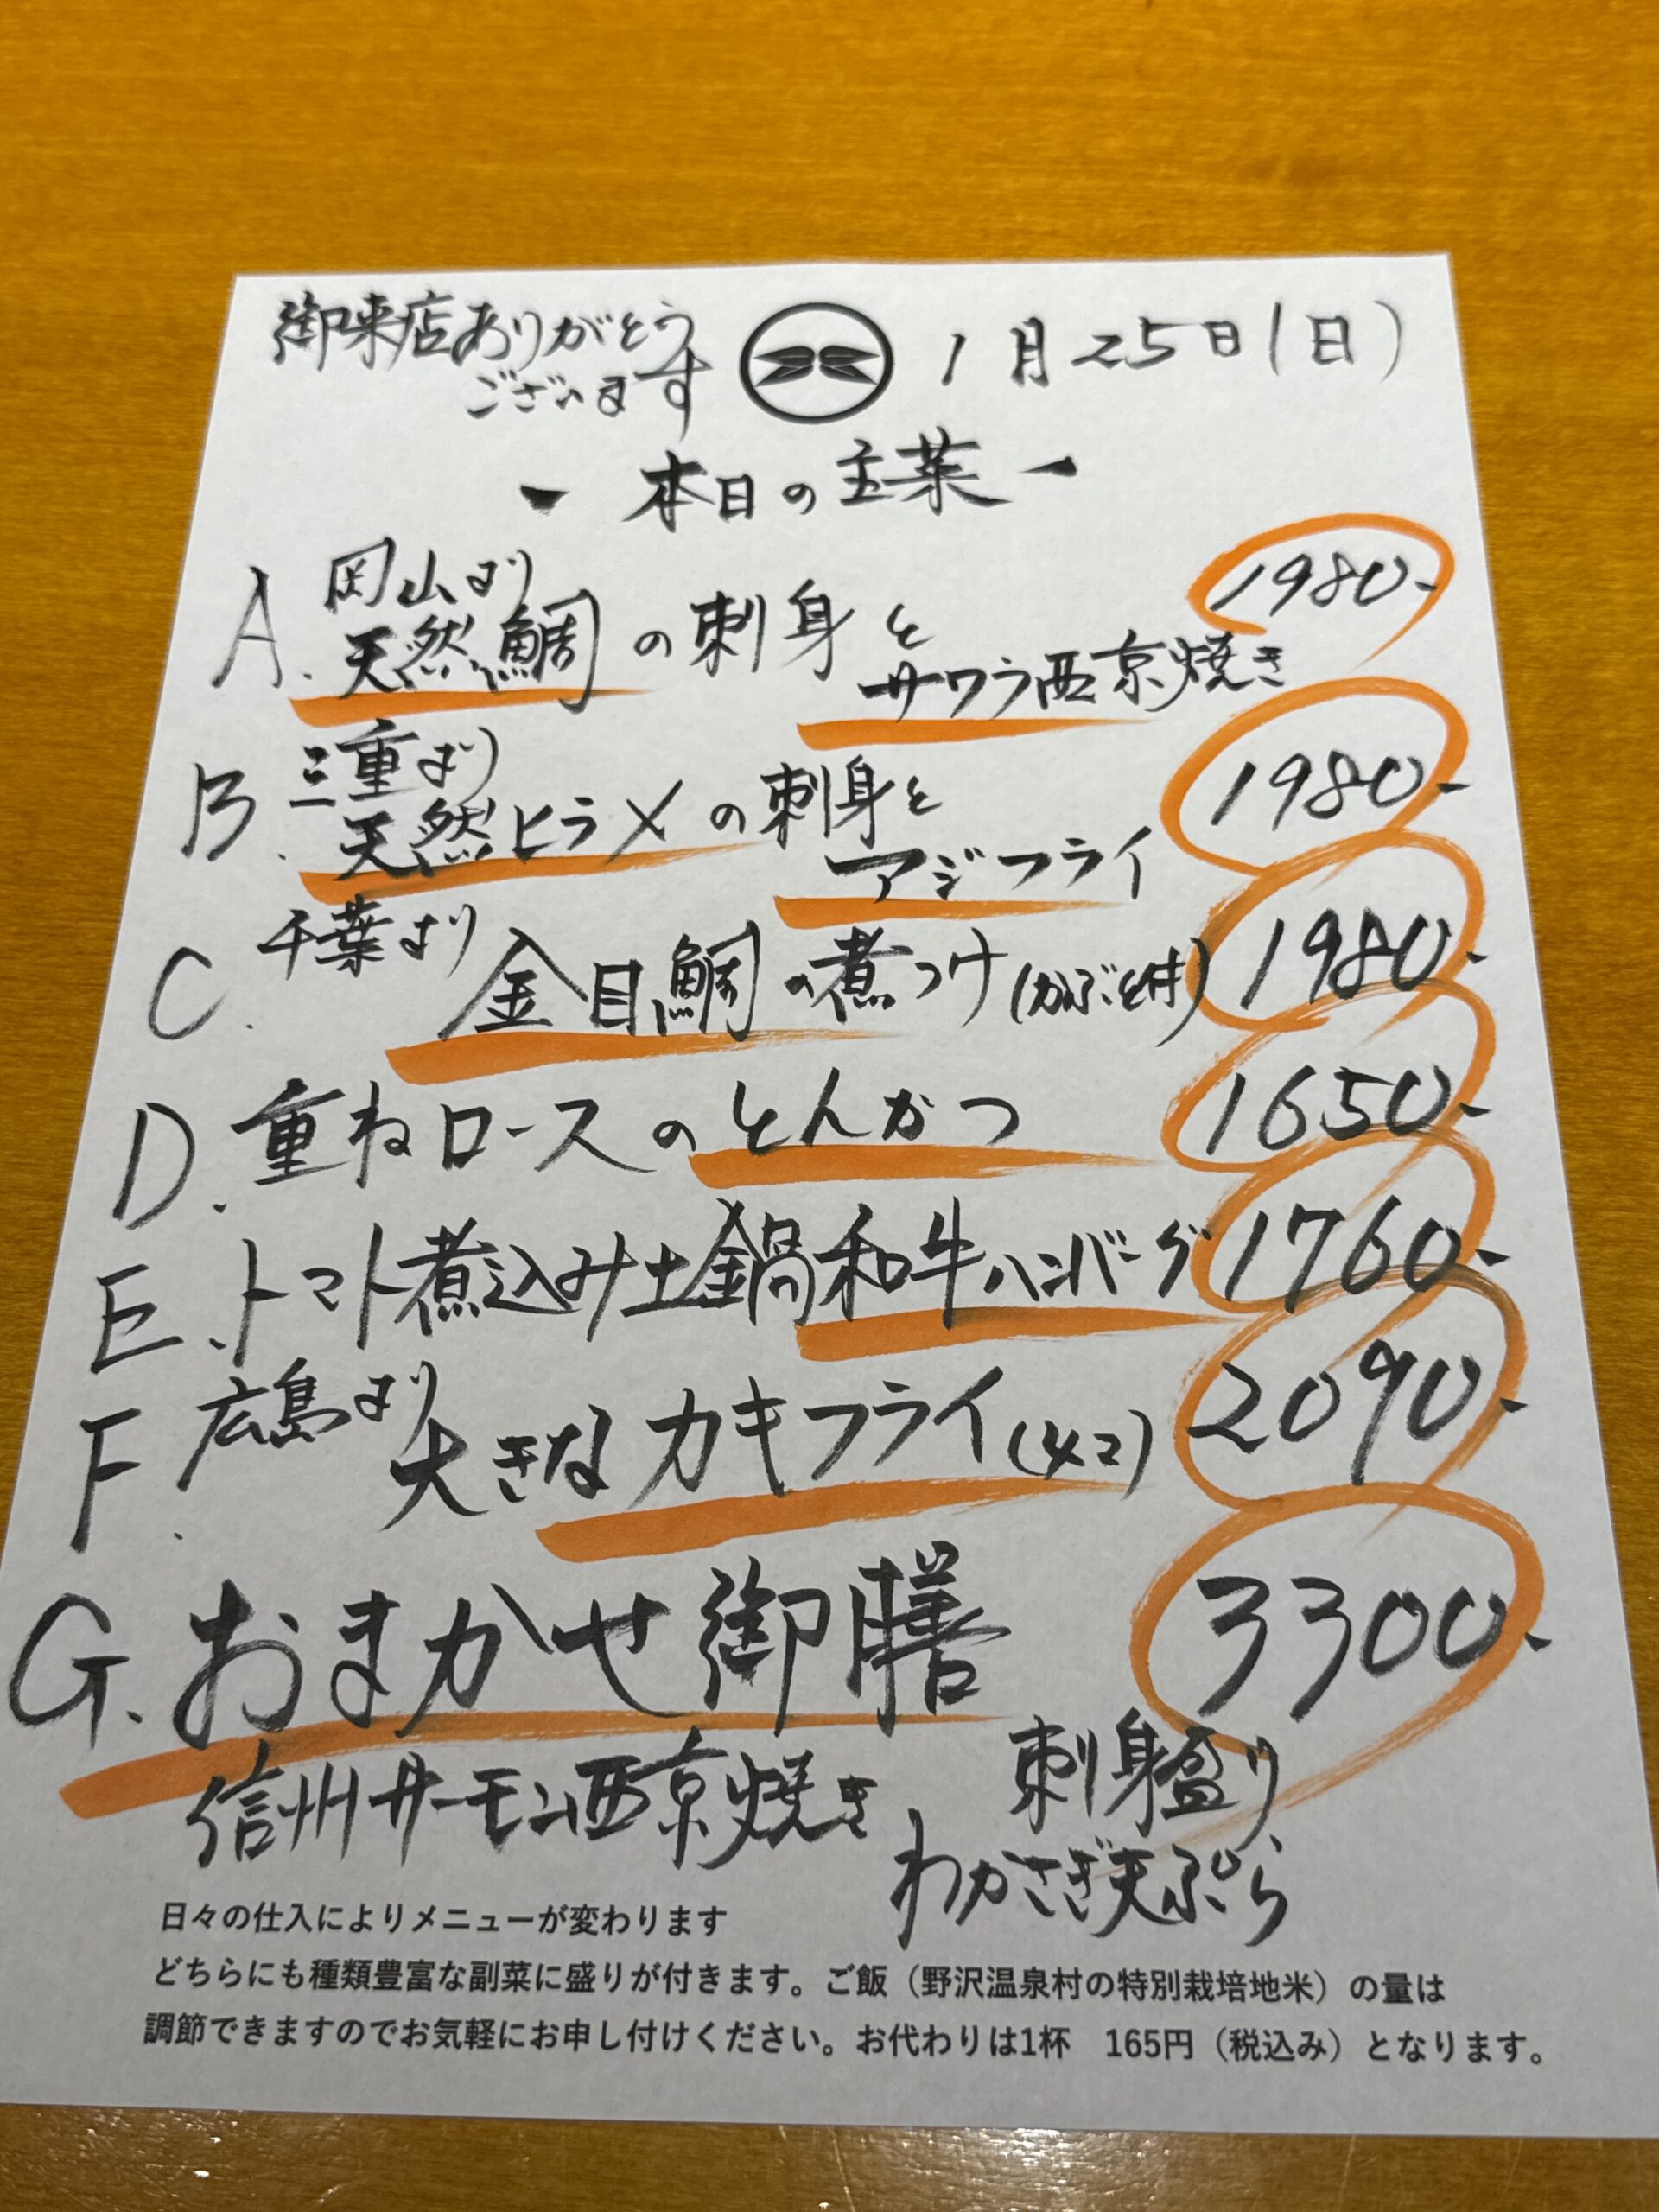 御来店ありがとう
ございます
1月25日(日)
- 本日の主菜 -
A. 岡山より
天然鯛の刺身と
サワラ西京焼き
1980-
B. 三重より
天然ヒラメの刺身と
アジフライ
1980-
C. 千葉より
金目鯛の煮つけ(かぶと付) 1980-
D. 重ねロースのとんかつ 1650-
E. トマト煮込み土鍋和牛ハンバーグ 1760-
F. 広島より
大きなカキフライ(4コ) 2090-
G. おまかせ御膳 3300-
信州サーモン西京焼き、刺身盛り、
わかさぎ天ぷら
日々の仕入によりメニューが変わります
どちらにも種類豊富な副菜に盛りが付きます。ご飯（野沢温泉村の特別栽培地米）の量は
調節できますのでお気軽にお申し付けください。お代わりは1杯　165円（税込み）となります。